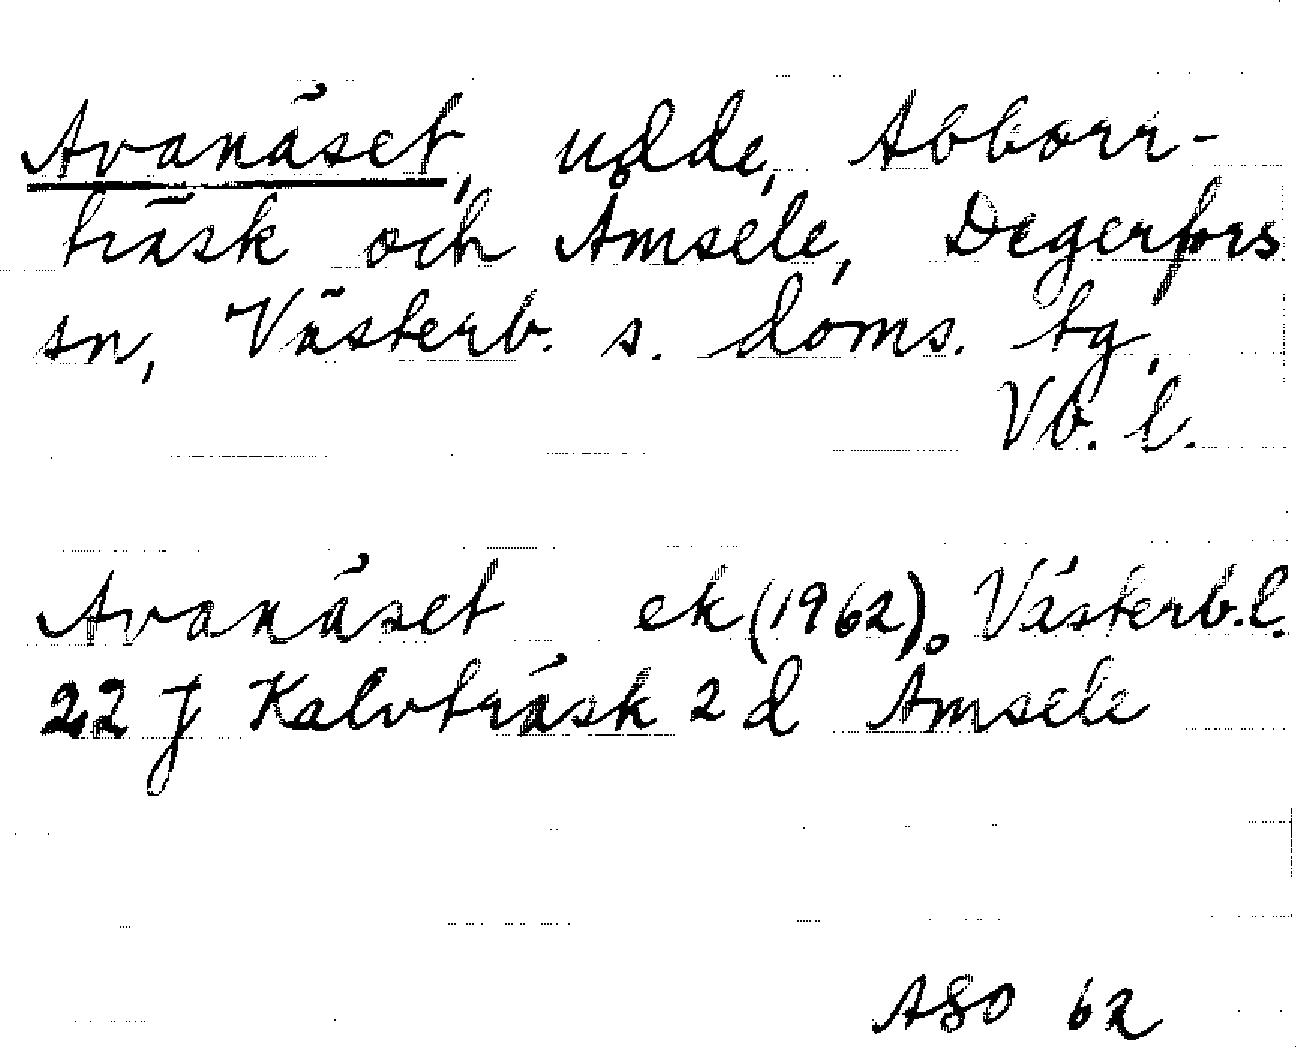 Avanäset, udde, Abborr-
träsk och Åmsele, Degerfors
sn, Västerb. s. doms. tg,
Vb. l.
Avanäset ek (1962), Västerb.l.
22 J Kalvträsk 2 d Åmsele
ASO 62